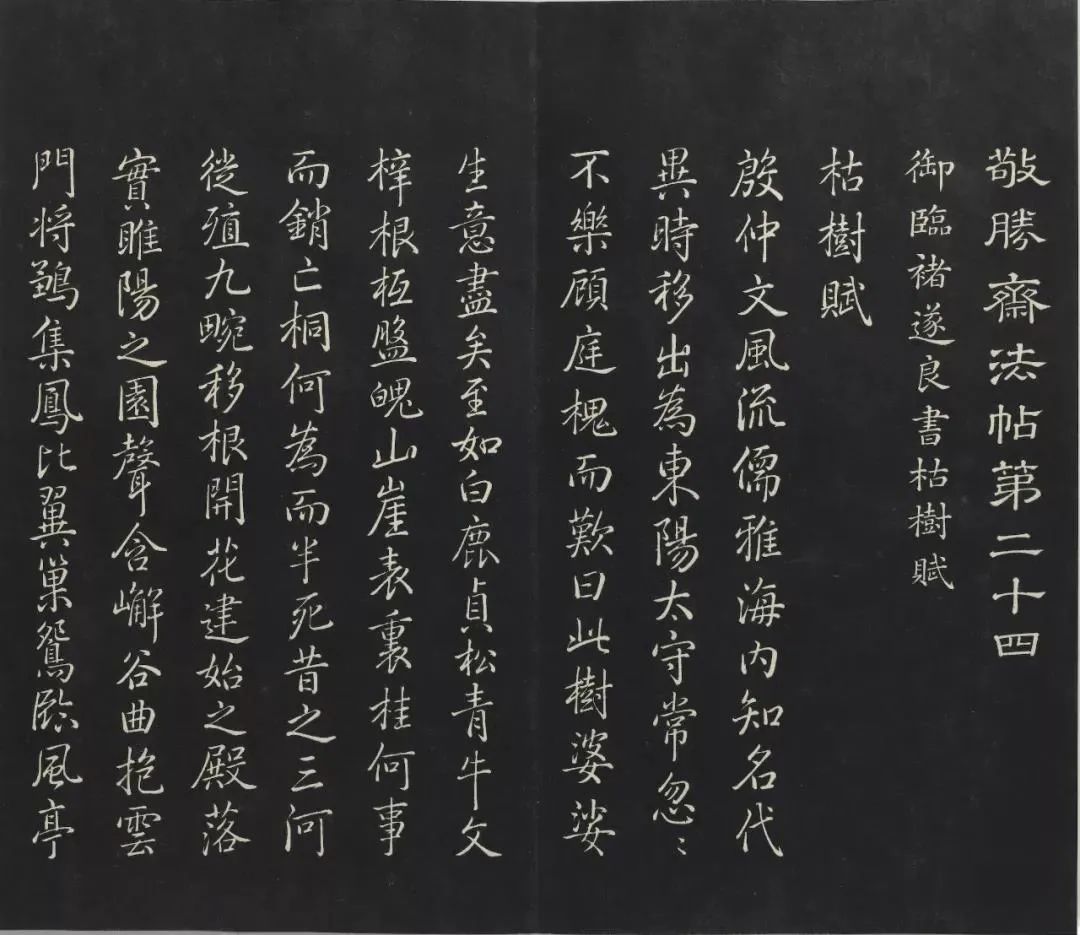 敬勝齋法帖第二十四
御臨褚遂良書枯樹賦
枯樹賦
殷仲文風流儒雅海内知名代
異時移出為東陽太守常忽〻
不樂顧庭槐而歎曰此樹婆娑
生意盡矣至如白鹿貞松青牛文
梓根柢盤魄山崖表裏桂何事
而銷亡桐何為而半死昔之三河
徙殖九畹移根開花建始之殿落
實睢陽之園聲含嶰谷曲抱雲
門将鶵集鳳比翼巢鴛臨風亭